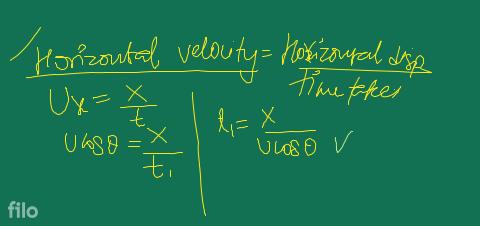 Horizontal velocity = Horizontal disp
Time taken
Ux = x
t
u cosθ = x
t₁
t₁ = x
u cosθ
filo